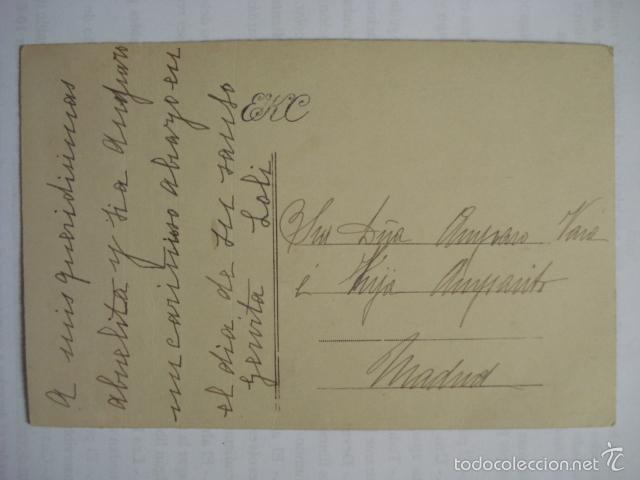 A mis queridisimas
abuelita y tia Amparo
un cariñoso abrazo en
el dia de su santo
Loli
EKC
Sra Dña Amparo
é Hija Amparito
Madrid
todocoleccion.net